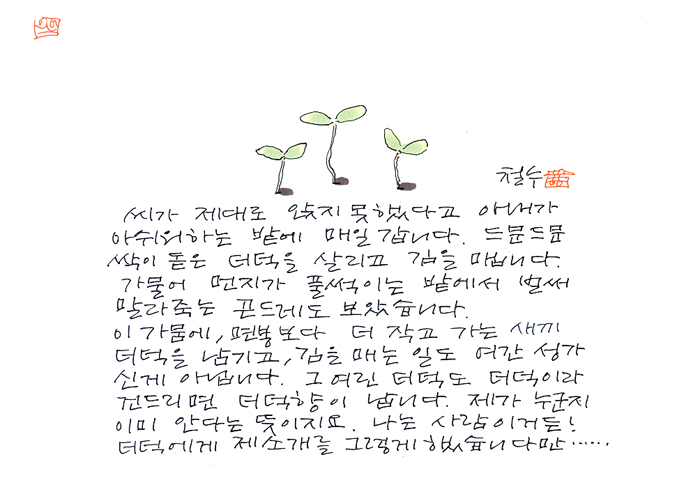 철수
씨가 제대로 앉지 못했다고 아내가
아쉬워하는 밭에 매일 갑니다. 드문드문
싹이 돋은 더덕을 살리고 김을 맵니다.
가물어 먼지가 풀썩이는 밭에서 벌써
말라죽는 곤드레도 보았습니다.
이 가뭄에, 면봉보다 더 작고 가는 새끼
더덕을 남기고, 김을 매는 일도 여간 성가
신게 아닙니다. 그 여린 더덕도 더덕이라
건드리면 더덕향이 납니다. 제가 누군지
이미 안다는 뜻이지요. 나는 사람이거든!
더덕에게 제 소개를 그렇게 했습니다만……